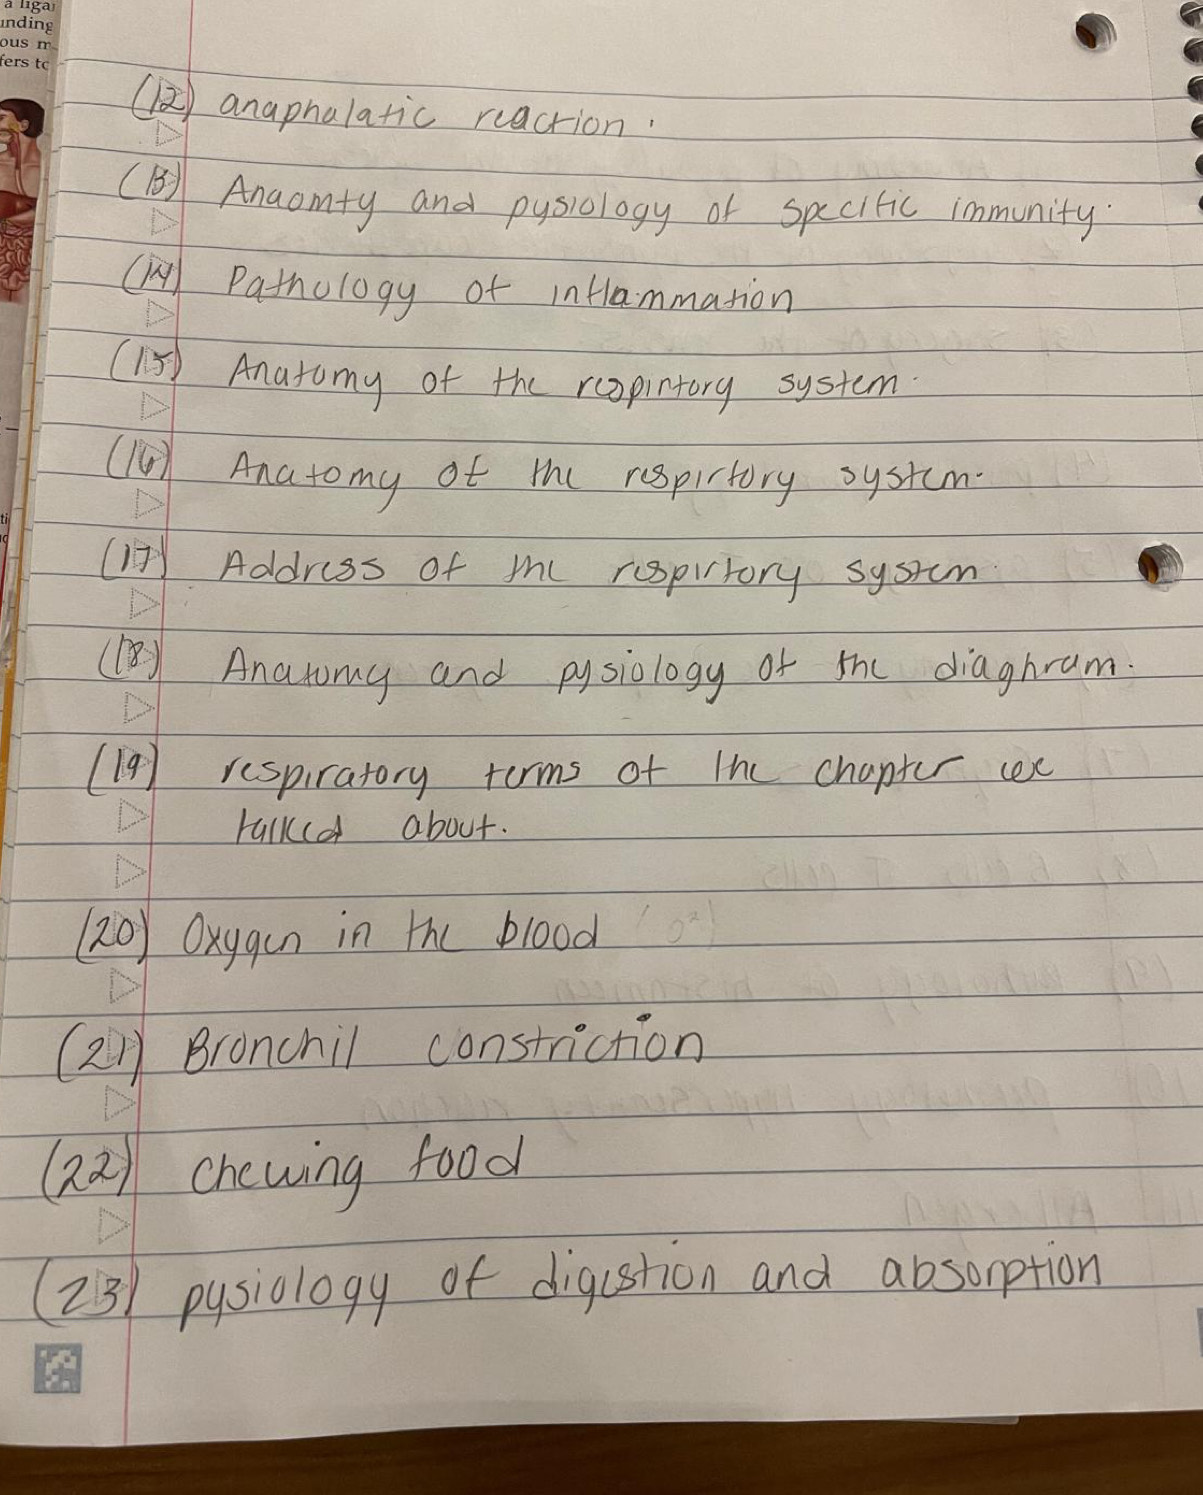 a ligai
unding
ous m
fers to
(12) anaphalatic reaction.
(13) Anaomty and pysiology of specific immunity.
(14) Pathology of inflammation
(15) Anatomy of the respintory system.
(16) Anatomy of the respirtory system.
(17) Address of the respirtory system
(18) Anatomy and pysiology of the diaghram.
(19) respiratory terms of the chapter we
talked about.
(20) Oxygen in the blood
(21) Bronchil constriction
(22) Chewing food
(23) pysiology of digestion and absorption